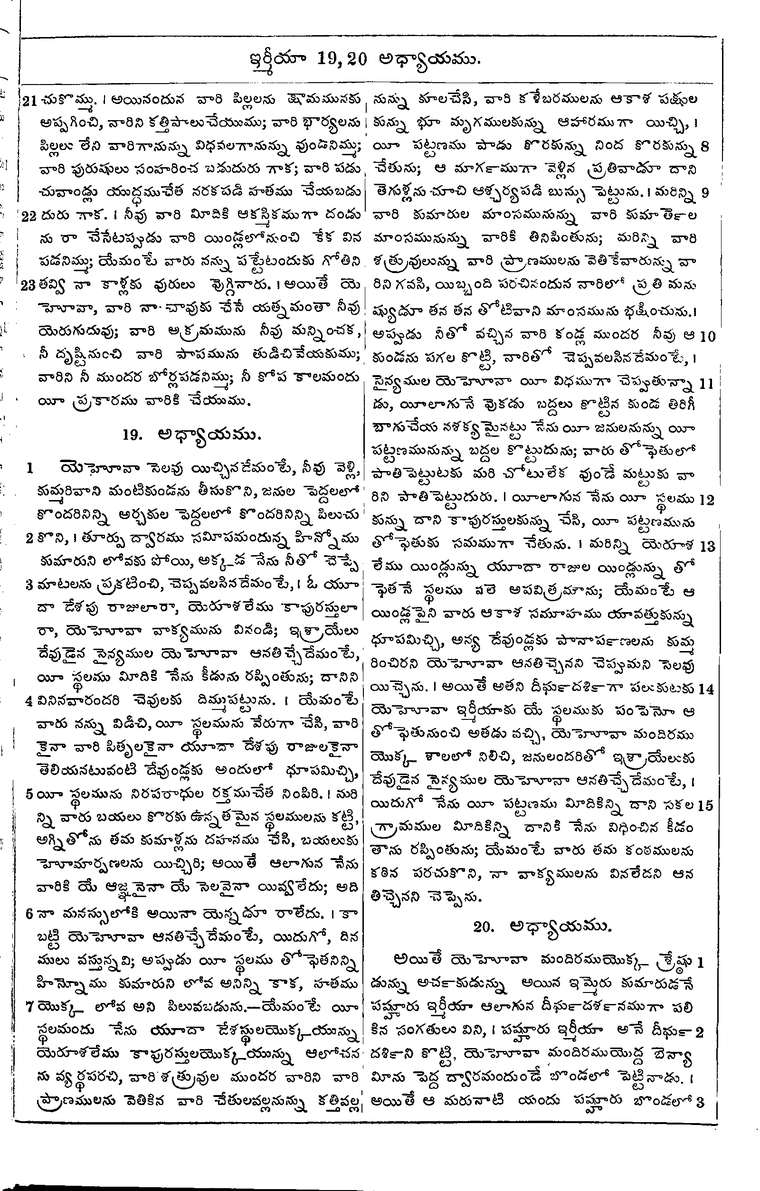 ఇర్మీయా 19, 20 అధ్యాయము.
21 చుకొమ్ము. । అయినందున వారి పిల్లలను క్షామమునకు
అప్పగించి, వారిని కత్తిపాలుచేయుము; వారి భార్యలను
పిల్లలు లేని వారిగానున్ను విధవలగానున్ను వుండనిమ్ము;
వారి పురుషులు సంహరించ బడుదురు గాక; వారి పడు
చువాండ్లు యుద్ధముచేత నరకపడి హతము చేయబడు
22 దురు గాక. । నీవు వారి మీదికి ఆకస్మికముగా దండు
ను రా చేసేటప్పుడు వారి యిండ్లలోనుంచి కేక విన
పడనిమ్ము; యేమంటే వారు నన్ను పట్టేటందుకు గోతిని
23 తవ్వి నా కాళ్లకు వురులు వుగ్గినారు. । అయితే యె
హోవా, వారి నా చావుకు చేసే యత్నమంతా నీవు
యెరుగుదువు; వారి అక్రమమును నీవు మన్నించక,
నీ దృష్టినుంచి వారి పాపమును తుడిచివేయకుము;
వారిని నీ ముందర బోర్లపడనిమ్ము; నీ కోప కాలమందు
యీ ప్రకారము వారికి చేయుము.
19. అధ్యాయము.
1 యెహోవా సెలవు యిచ్చినదేమంటే, నీవు వెళ్లి,
కుమ్మరివాని మంటికుండను తీసుకొని, జనుల పెద్దలలో
కొందరినిన్ని అర్చకుల పెద్దలలో కొందరినిన్ని పిలుచు
2 కొని, । తూర్పు ద్వారము సమీపమందున్న హిన్నోము
కుమారుని లోవకు పోయి, అక్కడ నేను నీతో చెప్పే
3 మాటలను ప్రకటించి, చెప్పవలసినదేమంటే, । ఓ యూ
దా దేశపు రాజులారా, యెరూశలేము కాపురస్తులా
రా, యెహోవా వాక్యమును వినండి; ఇశ్రాయేలు
దేవుడైన సైన్యముల యెహోవా ఆనతిచ్చేదేమంటే,
యీ స్థలము మీదికి నేను కీడును రప్పింతును; దానిని
4 వినినవారందరి చెవులకు దిమ్ముపట్టును. । యేమంటే
వారు నన్ను విడిచి, యీ స్థలమును వేరుగా చేసి, వారి
కైనా వారి పితృలకైనా యూదా దేశపు రాజులకైనా
తెలియనటువంటి దేవుండ్లకు అందులో ధూపమిచ్చి,
5 యీ స్థలమును నిరపరాధుల రక్తముచేత నింపిరి. । మరి
న్ని వారు బయలు కొరకు ఉన్నతమైన స్థలములను కట్టి,
అగ్నితోను తమ కుమాళ్లను దహనము చేసి, బయలుకు
హోమార్పణలను యిచ్చిరి; అయితే ఆలాగున నేను
వారికి యే ఆజ్ఞనైనా యే సెలవైనా యివ్వలేదు; అది
6 నా మనస్సులోకి అయినా యెన్నడూ రాలేదు. । కా
బట్టి యెహోవా ఆనతిచ్చేదేమంటే, యిదుగో, దిన
ములు వస్తున్నవి; అప్పుడు యీ స్థలము తోఫెతనిన్ని
హిన్నోము కుమారుని లోవ అనిన్ని కాక, హతము
7 యొక్క లోవ అని పిలువబడును.—యేమంటే యీ
స్థలమందు నేను యూదా దేశస్థులయొక్కయున్ను
యెరూశలేము కాపురస్తులయొక్కయున్ను ఆలోచన
ను వ్యర్థపరచి, వారి శత్రువుల ముందర వారిని వారి
ప్రాణములను వెతికిన వారి చేతులవల్లనున్ను కత్తివల్ల
నున్ను కూలచేసి, వారి కళేబరములను ఆకాశ పక్షుల
కున్ను భూ మృగములకున్ను ఆహారముగా యిచ్చి, ।
యీ పట్టణము పాడు కొరకున్ను నింద కొరకున్ను 8
చేతును; ఆ మార్గముగా వెళ్లిన ప్రతివాడూ దాని
తెగుళ్లను చూచి ఆశ్చర్యపడి బుస్సు పెట్టును. । మరిన్ని 9
వారి కుమారుల మాంసమునున్ను వారి కుమార్తెల
మాంసమునున్ను వారికి తినిపింతును; మరిన్ని వారి
శత్రువులున్ను వారి ప్రాణములను వెతికేవారున్ను వా
రిని గవసి, యిబ్బంది పరచినందున వారిలో ప్రతి మను
ష్యుడూ తన తన తోటివాని మాంసమును భక్షించును. ।
అప్పుడు నీతో వచ్చిన వారి కండ్ల ముందర నీవు ఆ 10
కుండను పగల కొట్టి, వారితో చెప్పవలసినదేమంటే, ।
సైన్యముల యెహోవా యీ విధముగా చెప్పుతున్నా 11
డు, యీలాగునే వుకడు బద్దలు కొట్టిన కుండ తిరిగీ
బాగుచేయ నశక్యమైనట్టు నేను యీ జనులనున్ను యీ
పట్టణమునున్ను బద్దల కొట్టుదును; వారు తోఫెతులో
పాతిపెట్టుటకు మరి చోటులేక వుండే మట్టుకు వా
రిని పాతిపెట్టుదురు. । యీలాగున నేను యీ స్థలము 12
కున్ను దాని కాపురస్తులకున్ను చేసి, యీ పట్టణమును
తోఫెతుకు సమముగా చేతును. । మరిన్ని యెరూశ 13
లేము యిండ్లున్ను యూదా రాజుల యిండ్లున్ను తో
ఫెతనే స్థలము వలె అపవిత్రమౌను; యేమంటే ఆ
యిండ్లపైని వారు ఆకాశ సమూహము యావత్తుకున్ను
ధూపమిచ్చి, అన్య దేవుండ్లకు పానార్పణలను కుమ్మ
రించిరని యెహోవా ఆనతిచ్చెనని చెప్పుమని సెలవు
యిచ్చెను. । అయితే అతని దీర్ఘదర్శిగా పలుకుటకు 14
యెహోవా ఇర్మీయాకు యే స్థలముకు పంపెనో ఆ
తోఫెతునుంచి అతడు వచ్చి, యెహోవా మందిరము
యొక్క శాలలో నిలిచి, జనులందరితో ఇశ్రాయేలుకు
దేవుడైన సైన్యముల యెహోవా ఆనతిచ్చేదేమంటే, ।
యిదుగో నేను యీ పట్టణము మీదికిన్ని దాని సకల 15
గ్రామముల మీదికిన్ని దానికి నేను విధించిన కీడం
తాను రప్పింతును; యేమంటే వారు తమ కంఠములను
కఠిన పరచుకొని, నా వాక్యములను వినలేదని ఆన
తిచ్చెనని చెప్పెను.
20. అధ్యాయము.
అయితే యెహోవా మందిరముయొక్క శ్రేష్ఠు 1
డున్ను అర్చకుడున్ను అయిన ఇమ్మెరు కుమారుడనే
పష్హూరు ఇర్మీయా ఆలాగున దీర్ఘదర్శనముగా పలి
కిన సంగతులు విని, । పష్హూరు ఇర్మీయా అనే దీర్ఘ 2
దర్శిని కొట్టి, యెహోవా మందిరముయొద్ద బెన్యా
మీను పెద్ద ద్వారమందుండే బొండలో పెట్టినాడు. ।
అయితే ఆ మరునాటి యందు పష్హూరు బొండలో 3